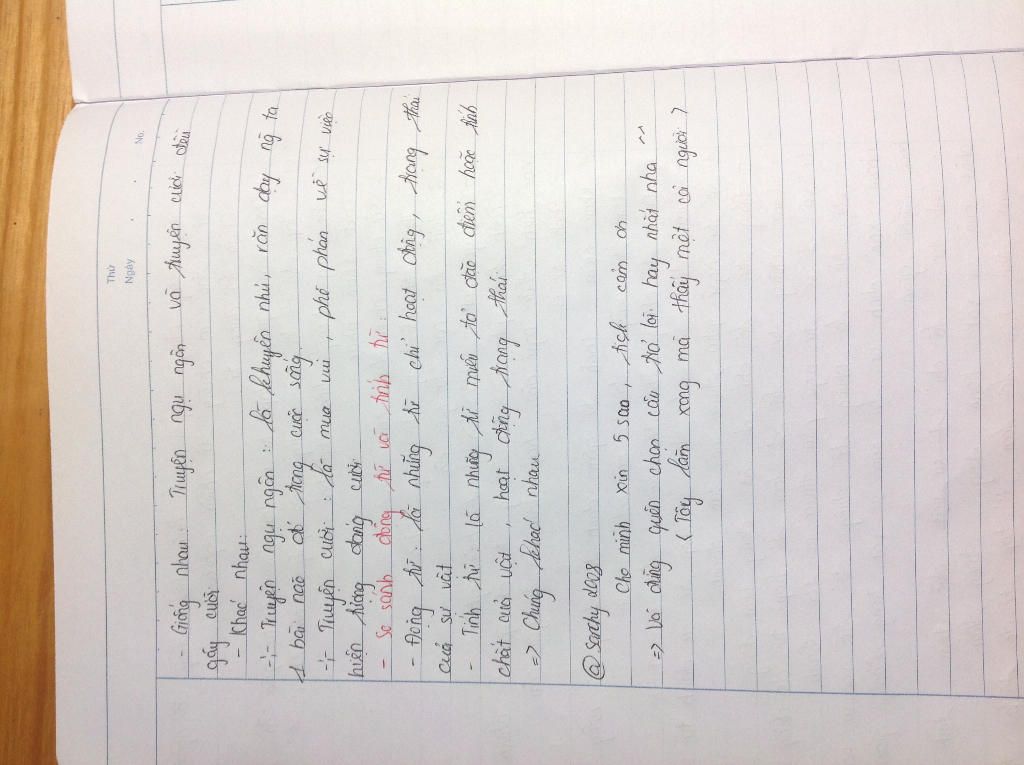 Thứ
Ngày
No.
- Giống nhau: Truyện ngụ ngôn và truyện cười đều
gây cười
- Khác nhau:
-:- Truyện ngụ ngôn: là khuyên nhủ, răn dạy ng ta
1 bài naõ đó trong cuộc sống.
-:- Truyện cười: là mua vui, phê phán về sự việc
hiện tượng đáng cười
- So sánh động từ và tính từ:
- Động từ: là những từ chỉ hoạt động, trạng thái
của sự vật
- Tính từ: là những từ miêu tả đặc điểm hoặc tính
chất của vật, hoạt động trạng thái.
=> Chúng khác nhau
@ 2008
Cho mình xin 5 sao, tick cảm ơn
=> Và đừng quên chọn câu trả lời hay nhất nha ^^
( Tôy làm xong mà thấy mệt cả người )